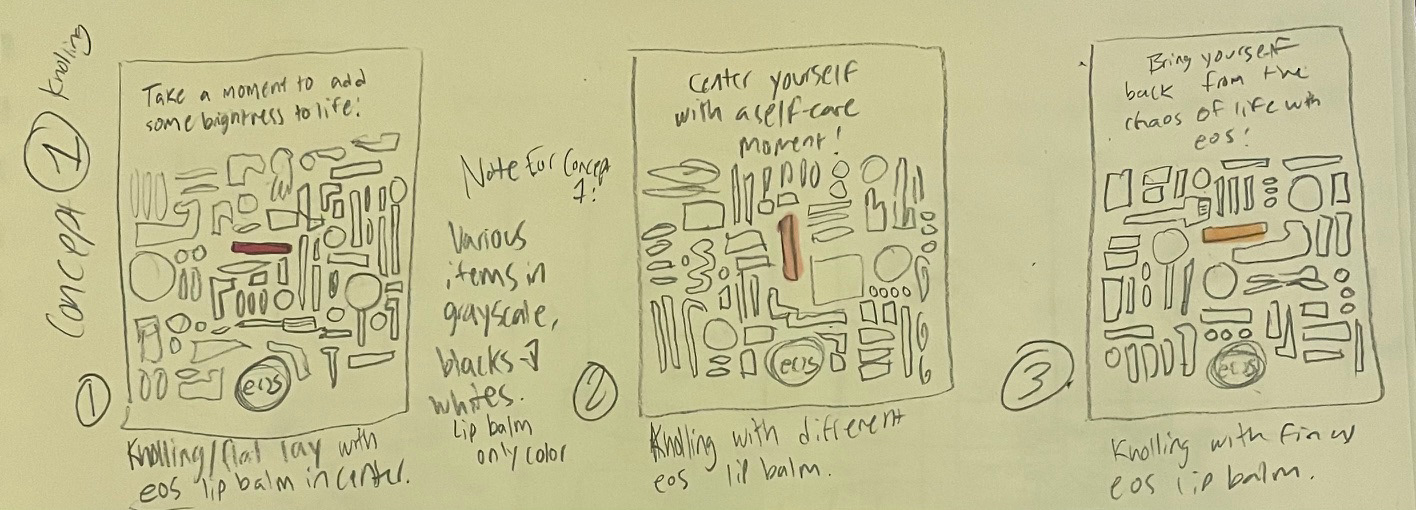 Concept 1 Knolling
Take a moment to add
some brightness to life!
eos
1
Knolling/flat lay with
eos lip balm in center.
Note for Concept
1:
Various
items in
grayscale,
blacks →
whites.
Lip balm
only color
Center yourself
with a self-care
moment!
eos
2
Knolling with different
eos lip balm.
Bring yourself
back from the
chaos of life with
eos!
eos
3
Knolling with
eos lip balm.